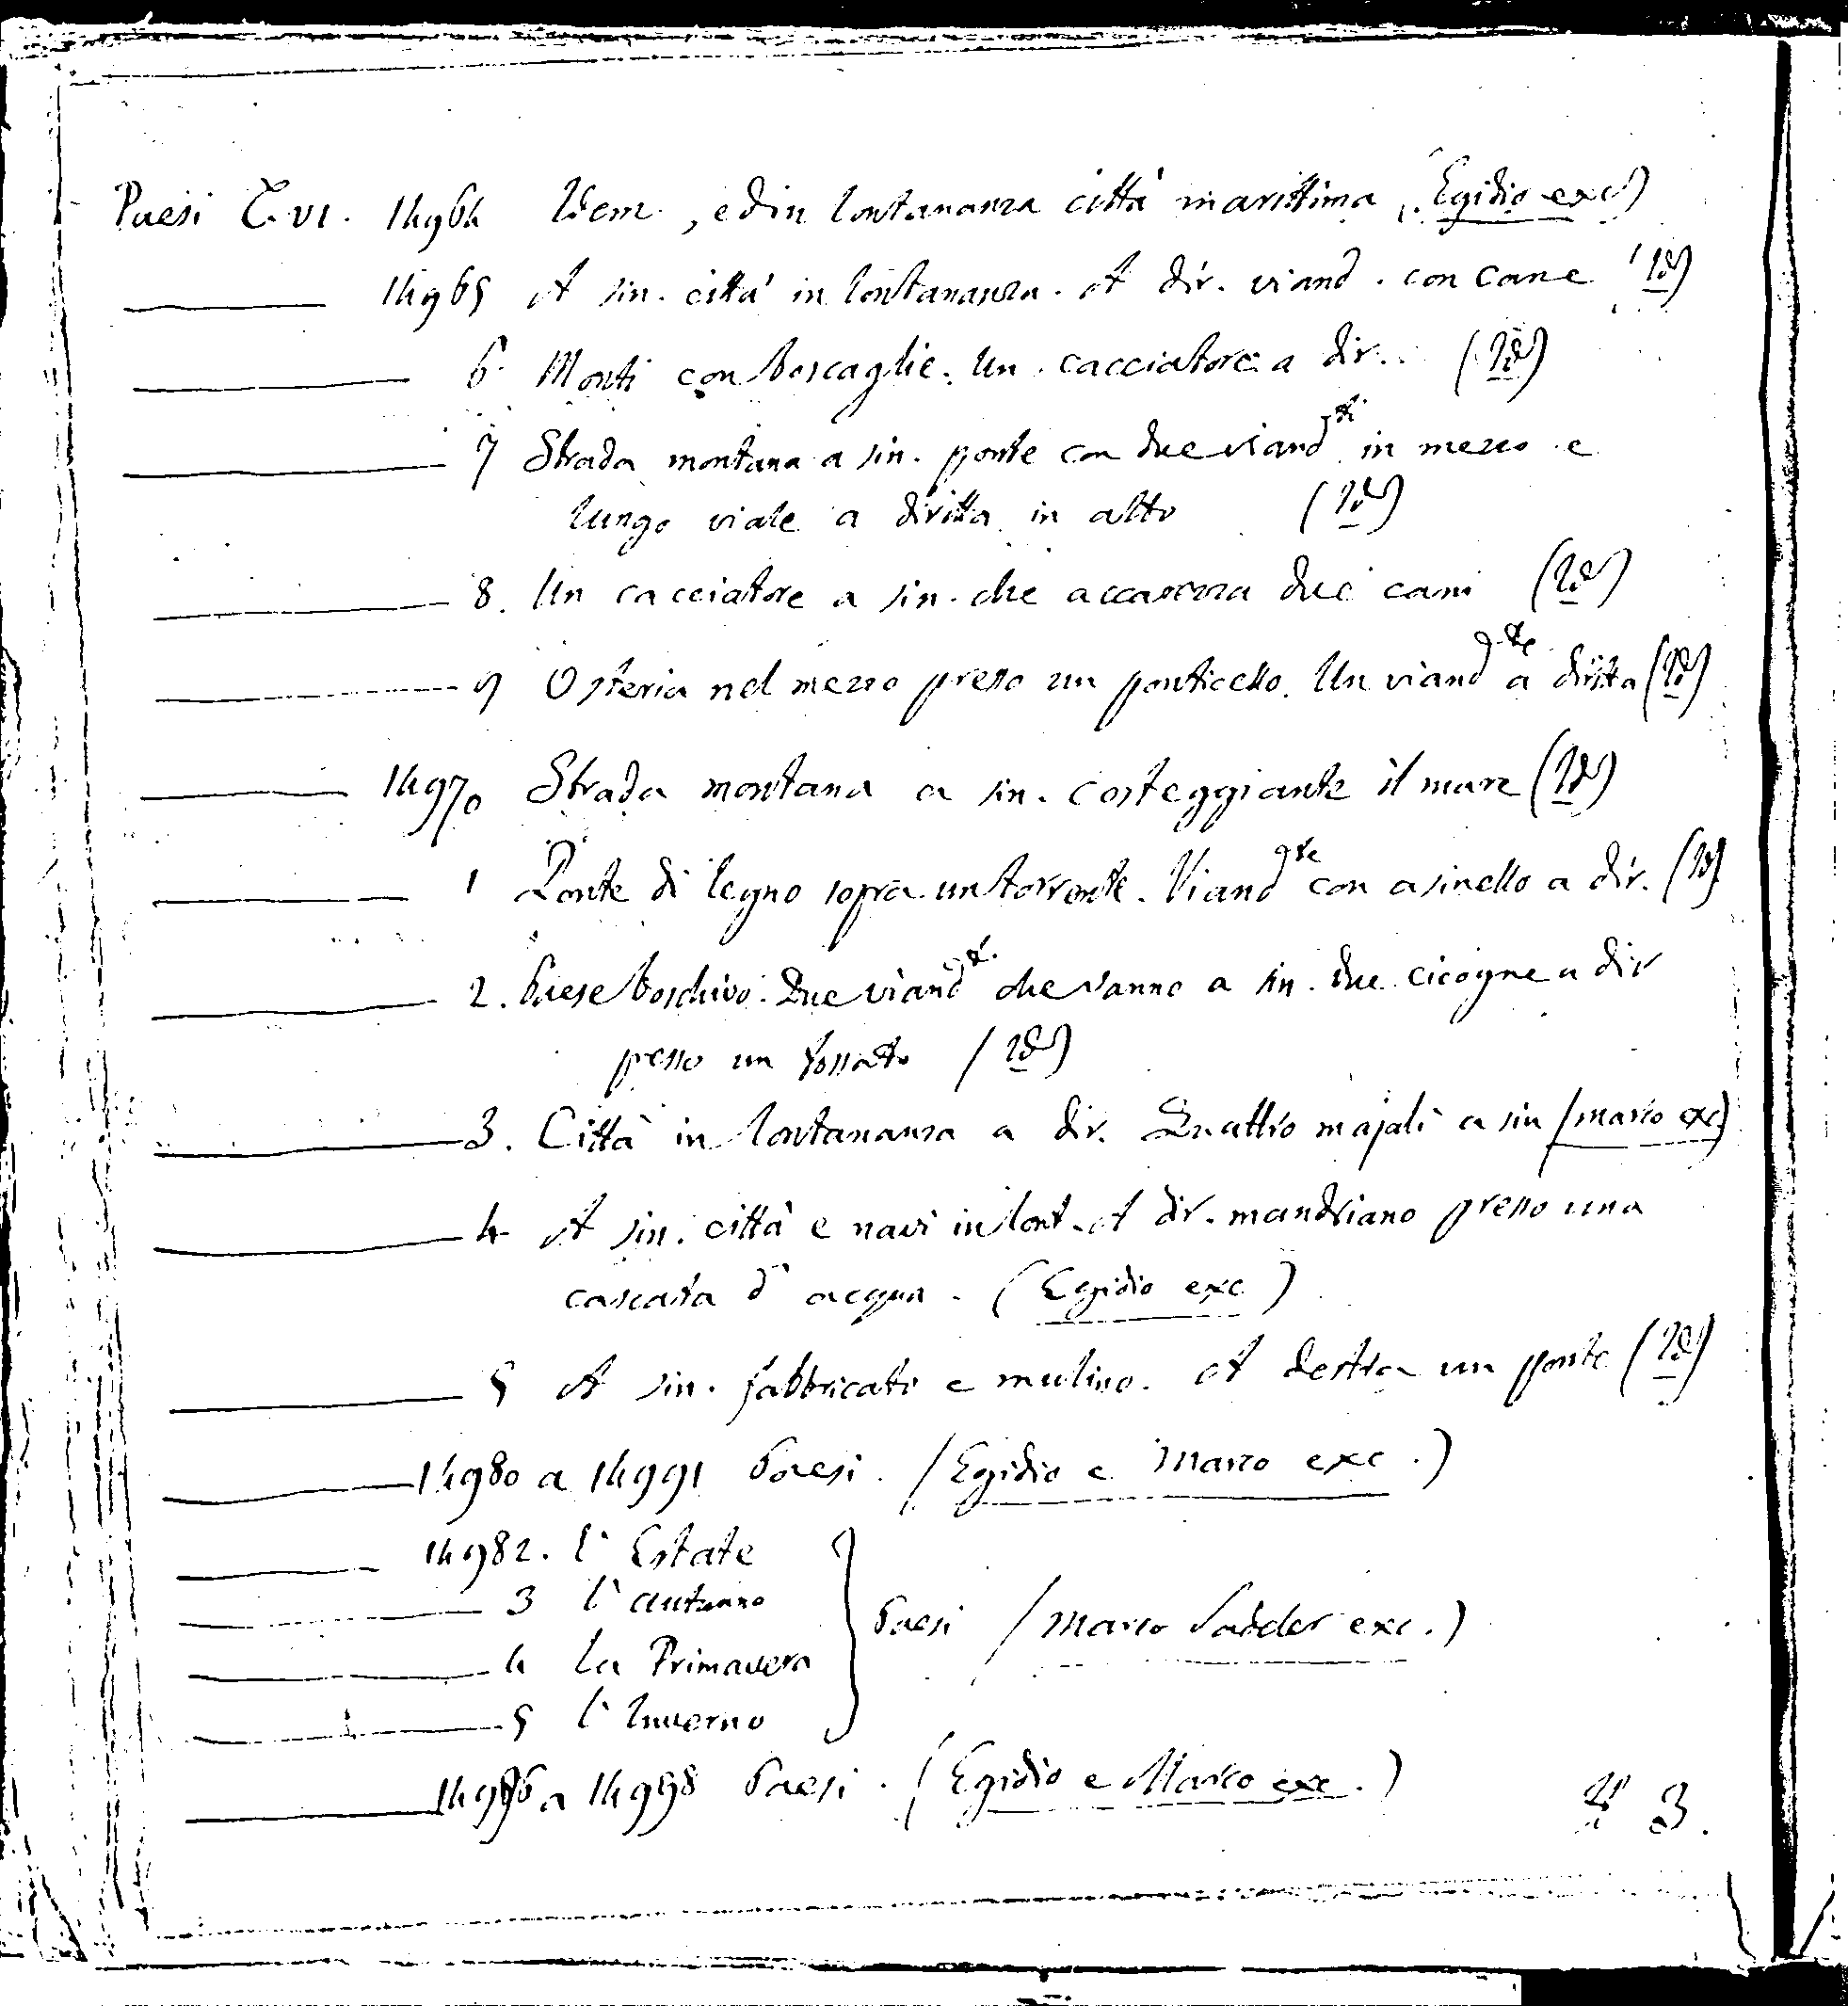 Paesi T. VI. 14964 Idem, ed in lontananza città marittima, (Egidio exc)
14965 A sin. città in lontananza. A dir. viand. con cane (Id)
6 Monti con boscaglie. Un cacciatore a dir. (Id)
7 Strada montana a sin. ponte con due viandti in mezzo e
lungo viale a diritta in alto (Id)
8. Un cacciatore a sin. che accarezza due cani (Id)
9 Osteria nel mezzo presso un ponticello. Un viandgte a diritta (Id)
14970 Strada montana a sin. costeggiante il mare (Id)
1 Ponte di legno sopra un torrente. Viandgte con asinello a dir. (Id)
2. Paese boschivo. Due viandgti che vanno a sin. due cicogne a dir
presso un fossato (Id)
3. Città in lontananza a dir. Quattro majali a sin (Marco exc)
4 A sin. città e navi in lont. A dir. mandriano presso una
cascata d'acqua. (Egidio exc)
5 A sin. fabbricati e mulino. A destra un ponte (Id)
14980 a 14991 Paesi. (Egidio e Marco exc.)
14982. l'Estate
3 l'autunno
4 La Primavera
5 l'Inverno
Paesi (Marco Sadeler exc.)
a 14998 Paesi. (Egidio e Marco exc.)
3.